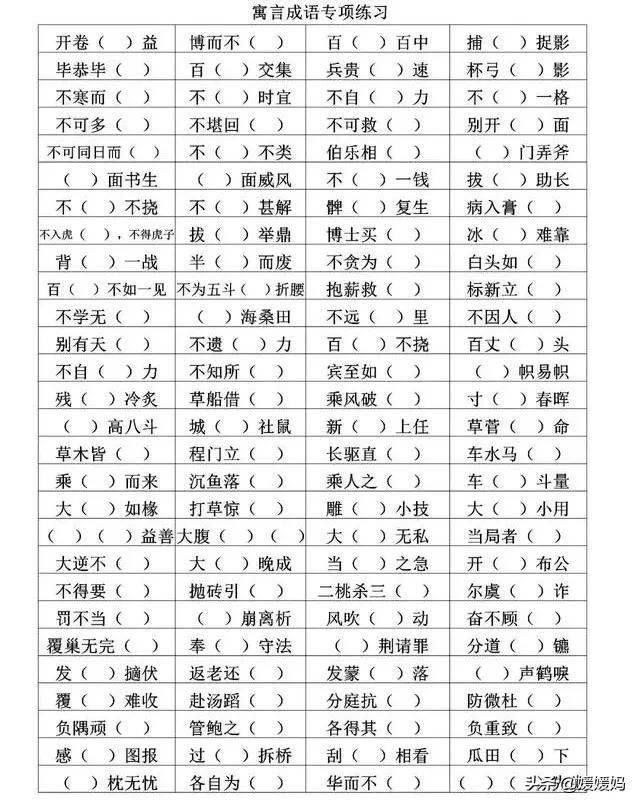 寓言成语专项练习
开卷（ ）益 博而不（ ） 百（ ）百中 捕（ ）捉影
毕恭毕（ ） 百（ ）交集 兵贵（ ）速 杯弓（ ）影
不寒而（ ） 不（ ）时宜 不自（ ）力 不（ ）一格
不可多（ ） 不堪回（ ） 不可救（ ） 别开（ ）面
不可同日而（ ） 不（ ）不类 伯乐相（ ） （ ）门弄斧
（ ）面书生 （ ）面威风 不（ ）一钱 拔（ ）助长
不（ ）不挠 不（ ）甚解 髀（ ）复生 病入膏（ ）
不入虎（ ），不得虎子 拔（ ）举鼎 博士买（ ） 冰（ ）难靠
背（ ）一战 半（ ）而废 不贪为（ ） 白头如（ ）
百（ ）不如一见 不为五斗（ ）折腰 抱薪救（ ） 标新立（ ）
不学无（ ） （ ）海桑田 不远（ ）里 不因人（ ）
别有天（ ） 不遗（ ）力 百（ ）不挠 百丈（ ）头
不自（ ）力 不知所（ ） 宾至如（ ） （ ）帜易帜
残（ ）冷炙 草船借（ ） 乘风破（ ） 寸（ ）春晖
（ ）高八斗 城（ ）社鼠 新（ ）上任 草菅（ ）命
草木皆（ ） 程门立（ ） 长驱直（ ） 车水马（ ）
乘（ ）而来 沉鱼落（ ） 乘人之（ ） 车（ ）斗量
大（ ）如椽 打草惊（ ） 雕（ ）小技 大（ ）小用
（ ）（ ）益善 大腹（ ）（ ） 大（ ）无私 当局者（ ）
大逆不（ ） 大（ ）晚成 当（ ）之急 开（ ）布公
不得要（ ） 抛砖引（ ） 二桃杀三（ ） 尔虞（ ）诈
罚不当（ ） （ ）崩离析 风吹（ ）动 奋不顾（ ）
覆巢无完（ ） 奉（ ）守法 （ ）荆请罪 分道（ ）镳
发（ ）摘伏 返老还（ ） 发蒙（ ）落 （ ）声鹤唳
覆（ ）难收 赴汤蹈（ ） 分庭抗（ ） 防微杜（ ）
负隅顽（ ） 管鲍之（ ） 各得其（ ） 负重致（ ）
感（ ）图报 过（ ）拆桥 刮（ ）相看 瓜田（ ）下
（ ）枕无忧 各自为（ ） 华而不（ ） （ ）（ ）
头条@媛媛妈